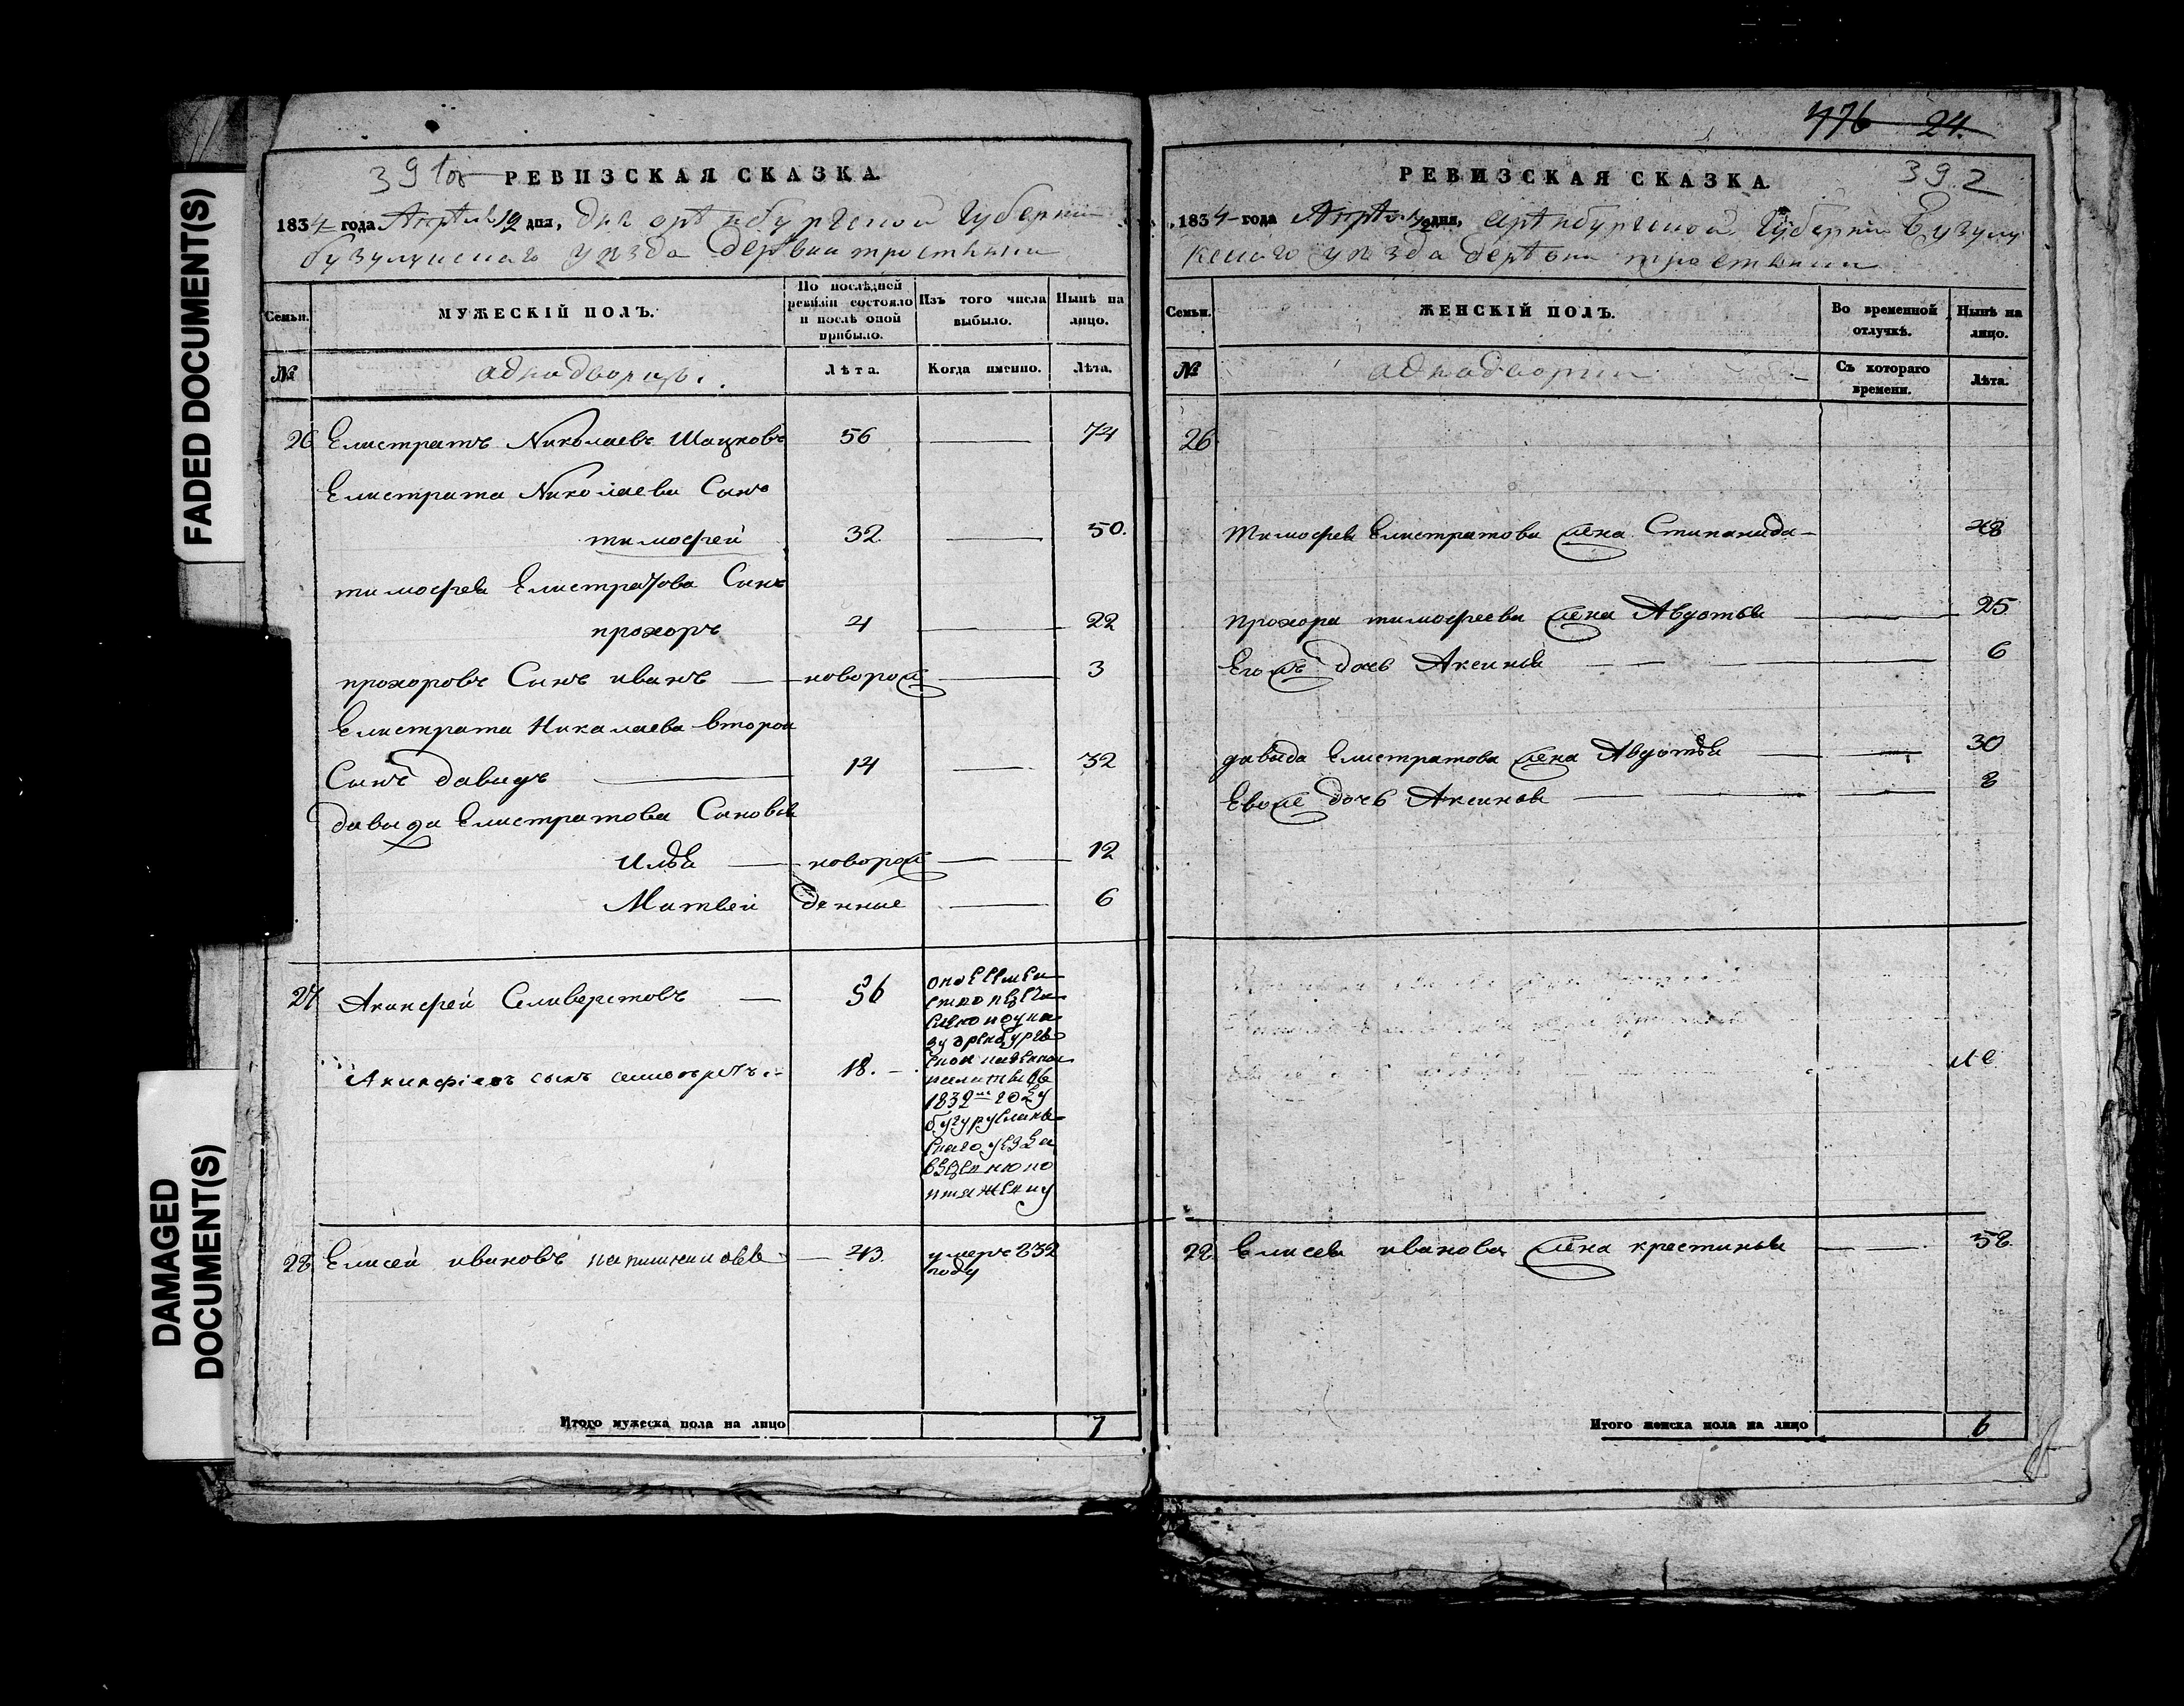 FADED DOCUMENT(S)
DAMAGED DOCUMENT(S)
391об
РЕВИЗСКАЯ СКАЗКА.
1834 года Апреля 19 дня, дня оренбургской Губернии
бузулукскаго уезда деревни тростянки
Семьи.
МУЖЕСКІЙ ПОЛЪ.
По послѣдней ревизіи состояло и послѣ оной прибыло.
Изъ того числа выбыло.
Нынѣ на лицо.
№
аднадворцы.
Лѣта.
Когда именно.
Лѣта.
26 Елистратъ Николаевъ Шацковъ 56 74
Елистрата Николаева Сынъ
тимофей 32 50.
тимофея Елистратова Сынъ
прохоръ 4 22
прохоровъ Сынъ иванъ новорож 3
Елистрата Никалаева второй
Сынъ давидъ 14 32
давида Елистратова Сыновья
Илья новорож 12
Матвей денные 6
27 Акинфей Селиверстовъ 56
Акинфіевъ сынъ 18.
1832го году
бугурусланв
скаго уезда
28 Елисей ивановъ 43. умеръ 832
году
Итого мужеска пола на лицо 7
776 24.
392
РЕВИЗСКАЯ СКАЗКА.
1834 года Апреля 19 дня, аренбургской Губернии Бузулу
кскаго уезда деревни тростянки
Семьи.
ЖЕНСКІЙ ПОЛЪ.
Во временной отлучкѣ.
Нынѣ на лицо.
№
аднадворки
Съ котораго времени.
Лѣта.
26
Тимофея Елистратова жена Стипанида 48
Прохора тимофеева жена Авдотья 25
Егожъ дочь Аксинья 6
давыда Елистратова жена Авдотья 30
Евоже дочь Аксинья 8
28 Елисея иванова жена крестинья 58.
Итого женска пола на лицо 6